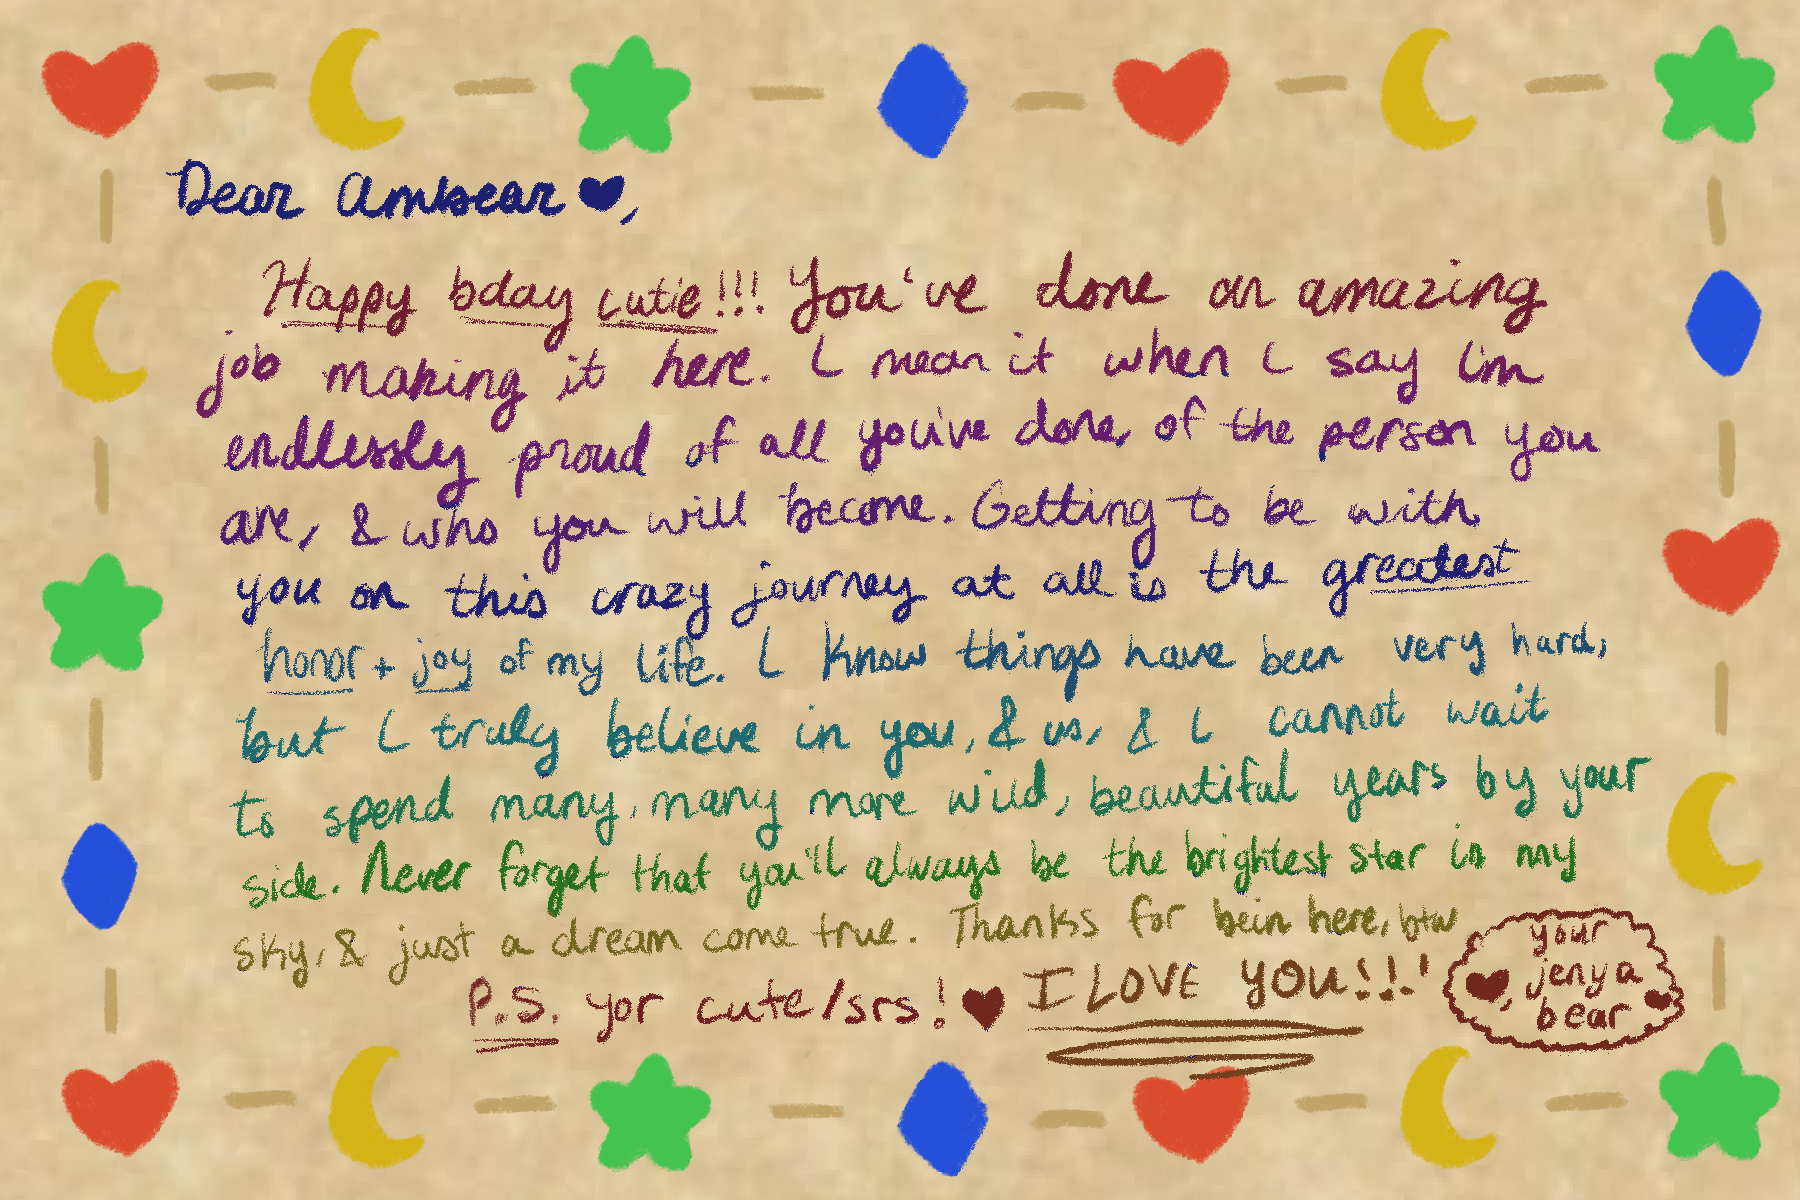 Dear Ambear ♥,
Happy bday cutie!!! You've done an amazing
job making it here. I mean it when I say I'm
endlessly proud of all you've done, of the person you
are, & who you will become. Getting to be with
you on this crazy journey at all is the greatest
honor + joy of my life. I know things have been very hard,
but I truly believe in you, & us, & I cannot wait
to spend many, many more wild, beautiful years by your
side. Never forget that you'll always be the brightest star in my
sky, & just a dream come true. Thanks for bein here, btw
P.S. yor cute/srs! ♥ I LOVE YOU!!!
your
♥, jenya
bear ♥